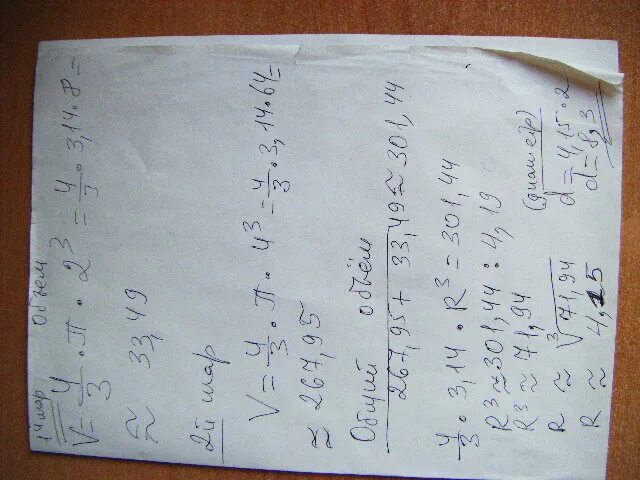 1й шар Объем
V = 4/3 · π · 2³ = 4/3 · 3,14 · 8 =
≈ 33,49
2й шар
V = 4/3 · π · 4³ = 4/3 · 3,14 · 64 =
≈ 267,95
Общий объём
267,95 + 33,49 ≈ 301,44
4/3 · 3,14 · R³ = 301,44
R³ ≈ 301,44 : 4,19
R³ ≈ 71,94
R ≈ ³√71,94
R ≈ 4,15
(диаметр)
d = 4,15 · 2
d = 8,3